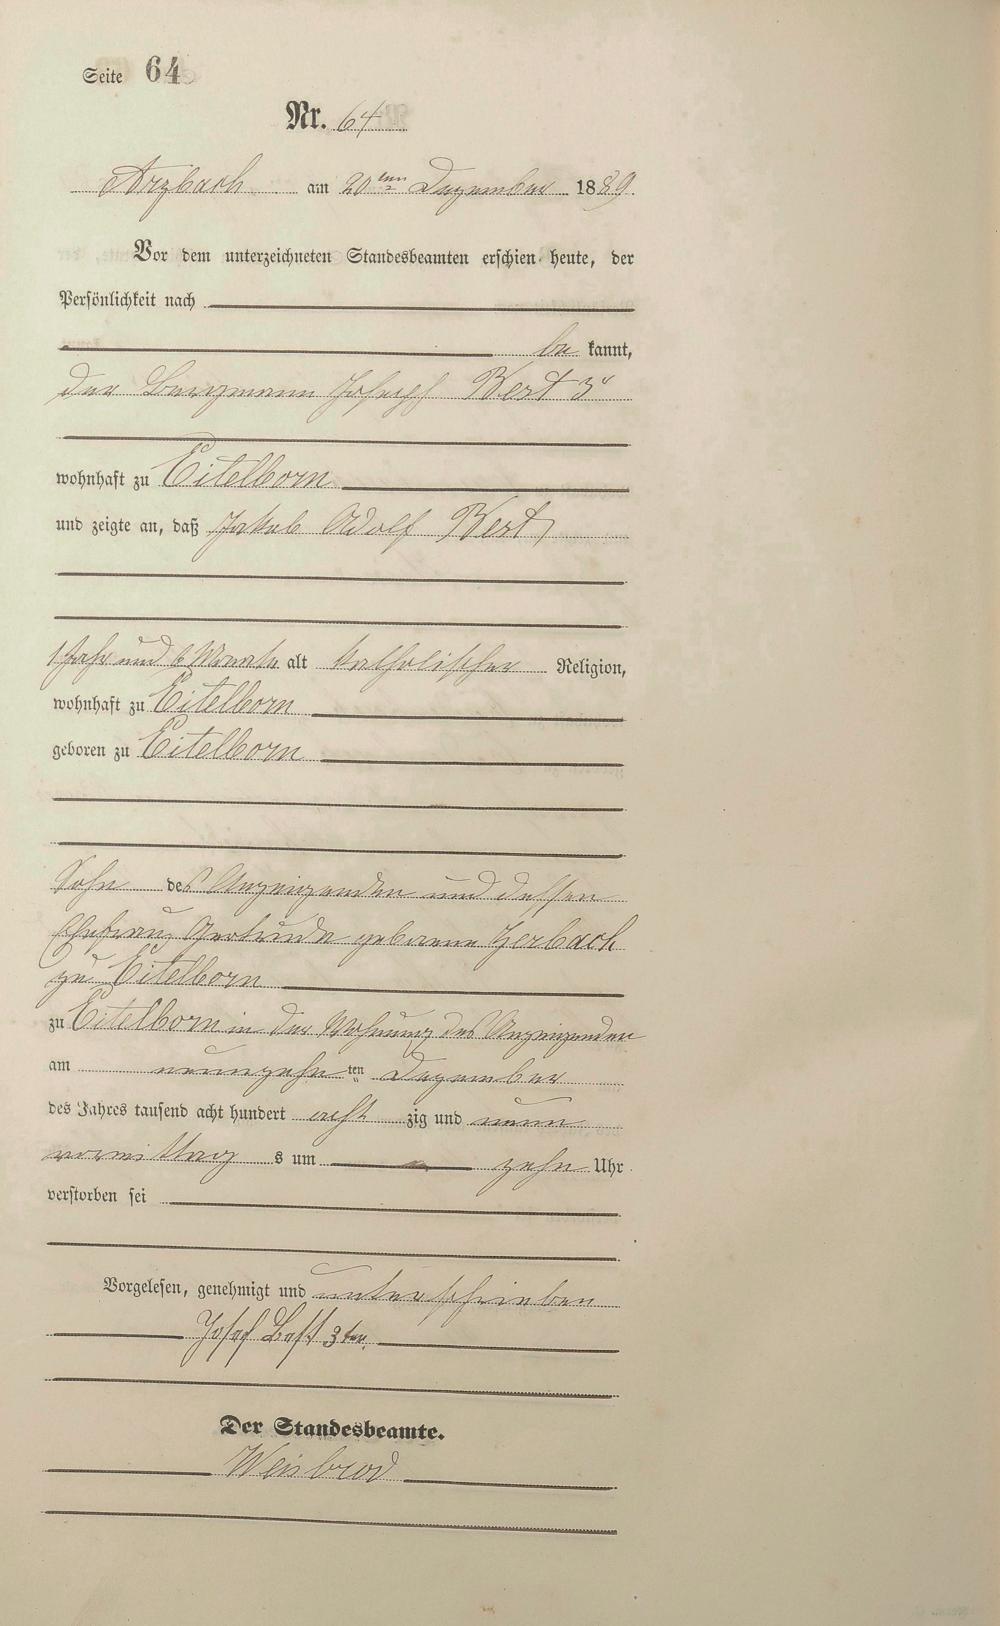 Seite 64
Nr. 64
Arzbach am 20ten Dezember 1889.
Vor dem unterzeichneten Standesbeamten erschien heute, der
Persönlichkeit nach
be kannt,
der Bergmann Joseph Best 3r
wohnhaft zu Eitelborn
und zeigte an, daß Jakob Adolf Best,
1 Jahr und 6 Monate alt katholischer Religion,
wohnhaft zu Eitelborn
geboren zu Eitelborn
Sohn des Anzeigenden und dessen
Ehefrau Gertrude geborene Zerbach
zu Eitelborn
zu Eitelborn in der Wohnung des Anzeigenden
am neunzehn ten Dezember
des Jahres tausend acht hundert acht zig und neun
vormittag s um zehn Uhr
verstorben sei
Vorgelesen, genehmigt und unterschrieben
Josef Best 3ter.
Der Standesbeamte.
Weisbrod